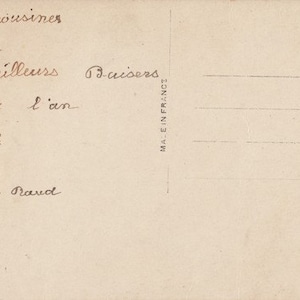 cousines
illeurs Baisers
l'an
Raud
MADE IN FRANCE